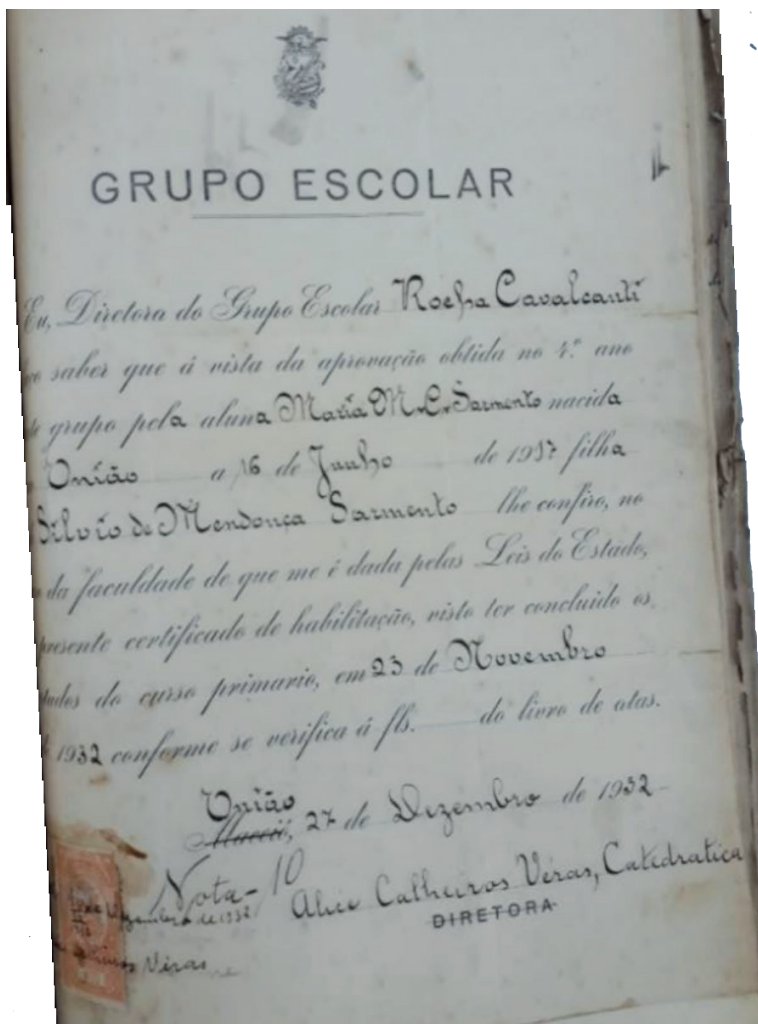 GRUPO ESCOLAR
Eu, Diretora do Grupo Escolar Rocha Cavalcanti
saber que á vista da aprovação obtida no 4.º ano
grupo pela aluna Maria M. C. Sarmento nacida
União a 16 de Junho de 1917 filha
Silvio de Mendonça Sarmento lhe confiro, no
da faculdade de que me é dada pelas Leis do Estado,
presente certificado de habilitação, visto ter concluido os
do curso primario, em 23 de Novembro
1932 conforme se verifica á fls. do livro de atas.
União
Maceió, 27 de Dezembro de 1932
Nota - 10
Alice Calheiros Véras, Catedratica
DIRETORA
de Dezembro de 1932
Véras